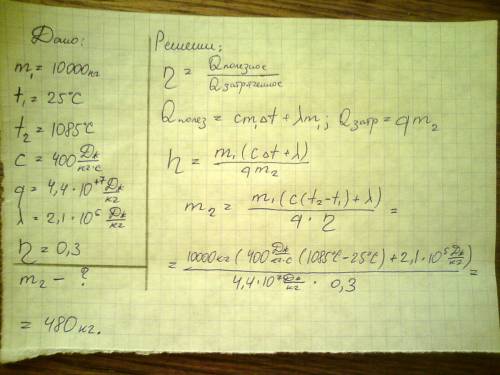 Дано:
m₁ = 10000кг
t₁ = 25°C
t₂ = 1085°C
c = 400 Дж/кг·с
q = 4,4·10⁺⁷ Дж/кг
λ = 2,1·10⁵ Дж/кг
η = 0,3
m₂ – ?
= 480кг.
Решени;
η = Qполезное/Qзатраченное
Qполез = cm₁Δt + λm₁; Qзатр = qm₂
η = m₁(cΔt + λ)/qm₂
m₂ = m₁(c(t₂-t₁)+λ)/q·η =
= 10000кг(400 Дж/кг·с (1085°C – 25°C) + 2,1·10⁵ Дж/кг)/4,4·10⁷ Дж/кг · 0,3 =